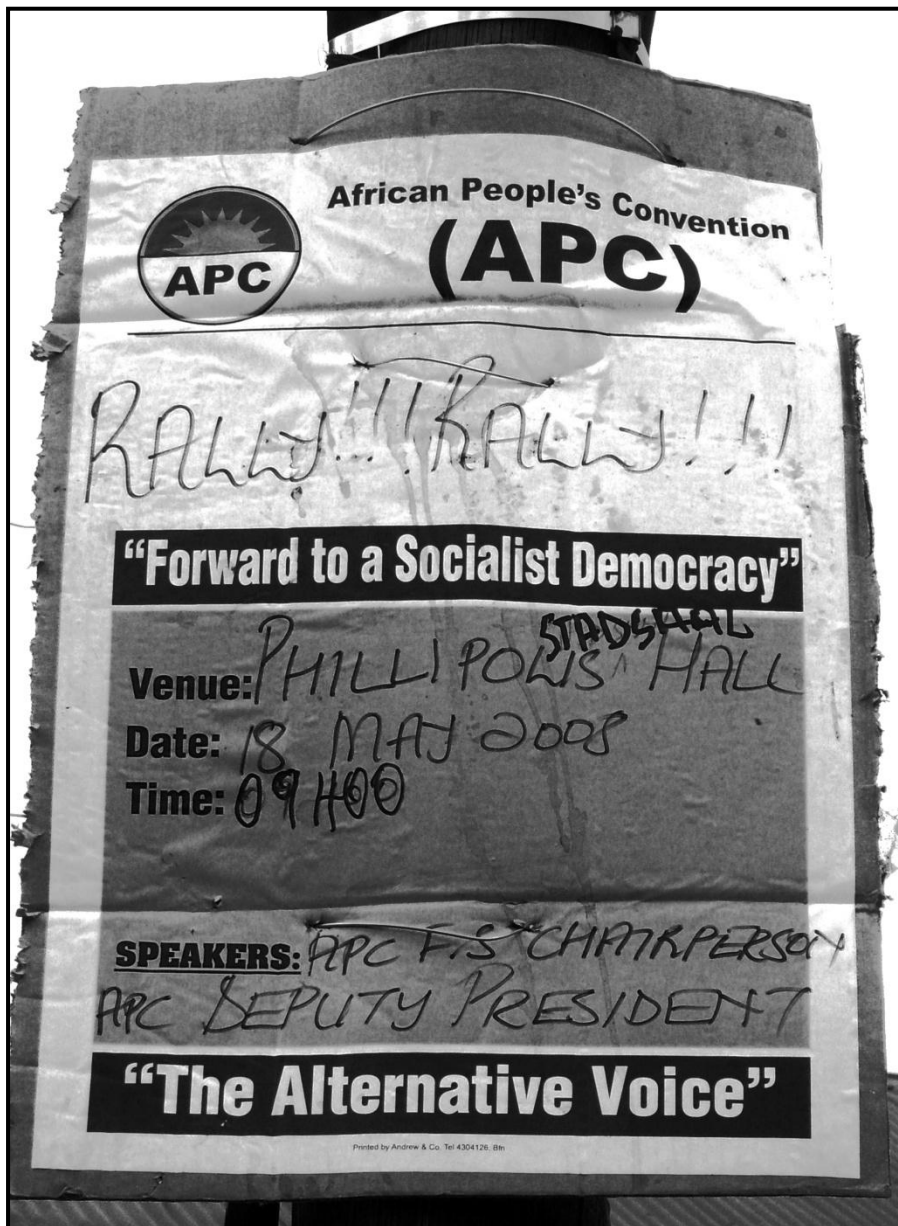 African People's Convention
(APC)
APC
RALLY!!! RALLY!!!
"Forward to a Socialist Democracy"
STADSHAL
Venue: PHILLIPOLIS ^ HALL
Date: 18 MAY 2008
Time: 09H00
SPEAKERS: APC F.S CHAIRPERSON
APC DEPUTY PRESIDENT
"The Alternative Voice"
Printed by Andrew & Co. Tel 4304126, Bfn